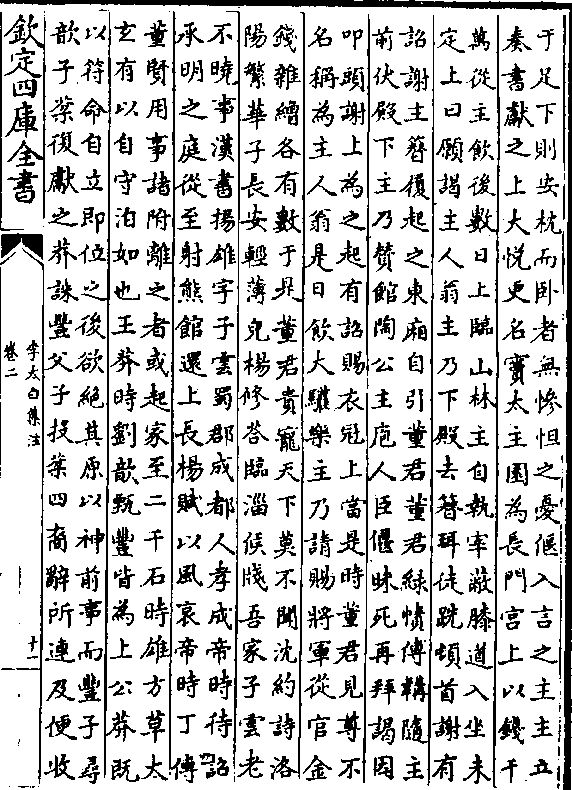 于足下則安枕而卧者無慘怛之憂偃入言之主主立
奏書獻之上大悅更名竇太主園為長門宮上以錢千
萬從主飲後數日上臨山林主自執宰蔽膝道入坐未
定上曰願謁主人翁主乃下殿去簪珥徒跣頓首謝有
詔謝主簪履起之東廂自引董君董君綠幘傅韝隨主
前伏殿下主乃贊館陶公主庖人臣偃昧死再拜謁因
叩頭謝上為之起有詔賜衣冠上當是時董君見尊不
名稱為主人翁是日飲大驩樂主乃請賜將軍從官金
錢雜繒各有數于是董君貴寵天下莫不聞沈約詩洛
陽繁華子長安輕薄兒楊修答臨淄侯牋吾家子雲老
不曉事漢書揚雄字子雲蜀郡成都人孝成帝時待詔
承明之庭從至射熊館還上長楊賦以風哀帝時丁傅
董賢用事諸附離之者或起家至二千石時雄方草太
玄有以自守泊如也王莽時劉歆甄豐皆為上公莽既
以符命自立即位之後欲絕其原以神前事而豐子尋
歆子棻復獻之莽誅豐父子投棻四裔辭所連及便收
欽定四庫全書
李太白集注
卷二
十一